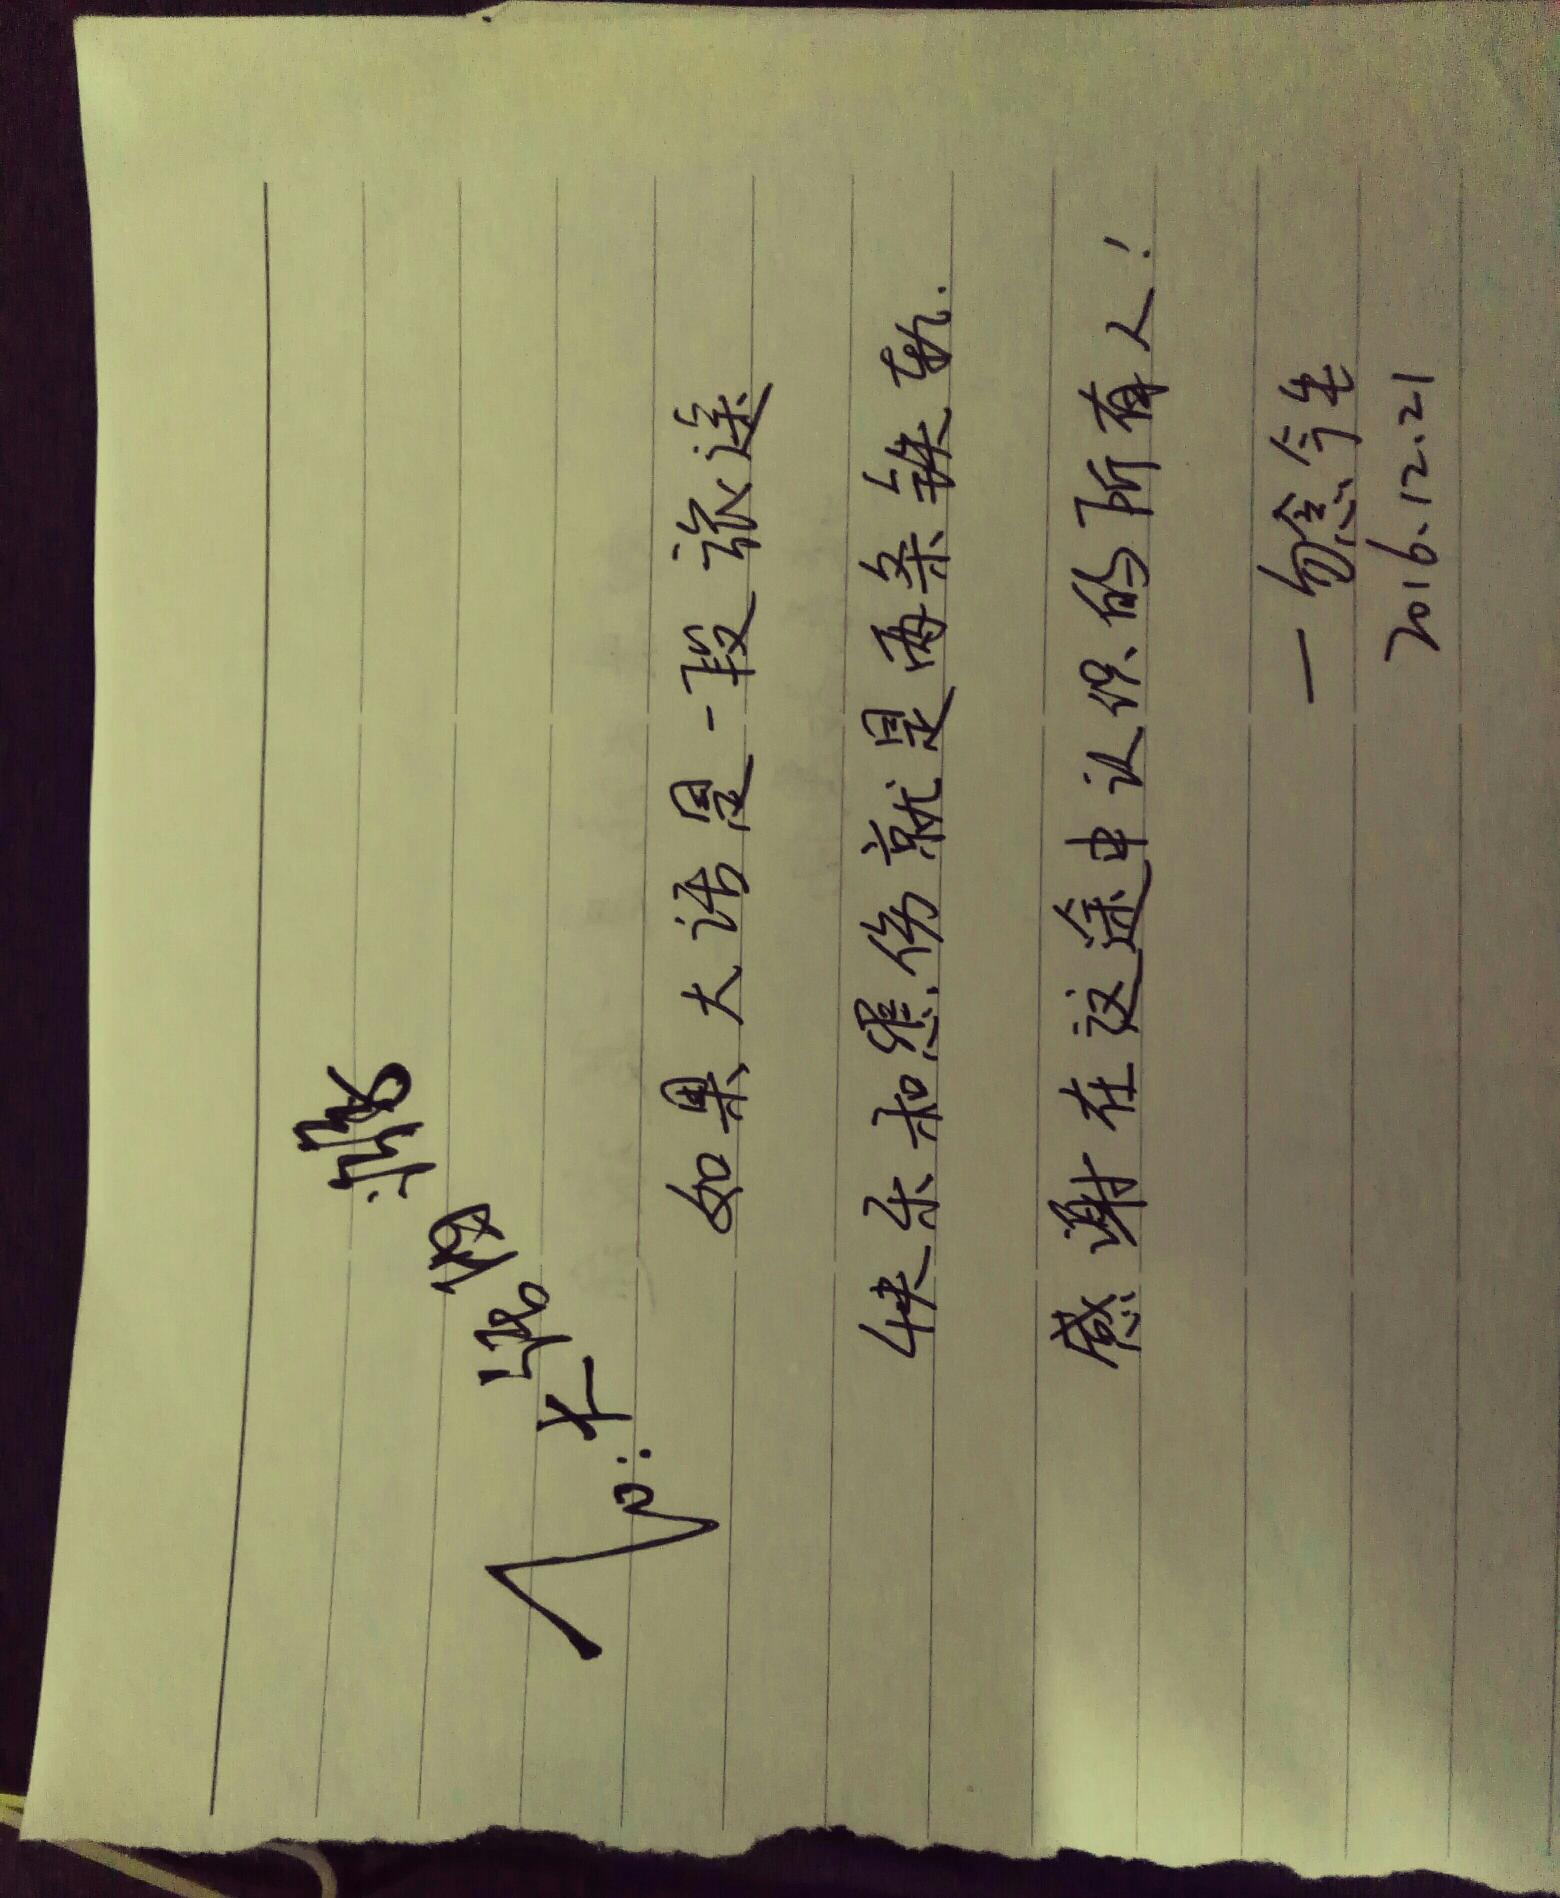 To:
如果大话是一段旅途
快乐和悲伤就是两条铁轨.
感谢在这途中认识的所有人!
一勿念今生
2016.12.21